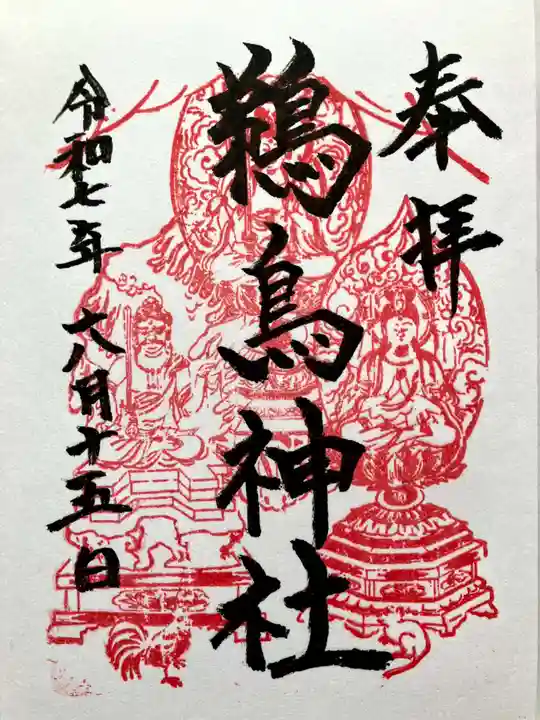 奉拝
鵜鳥神社
令和七年 六月十五日